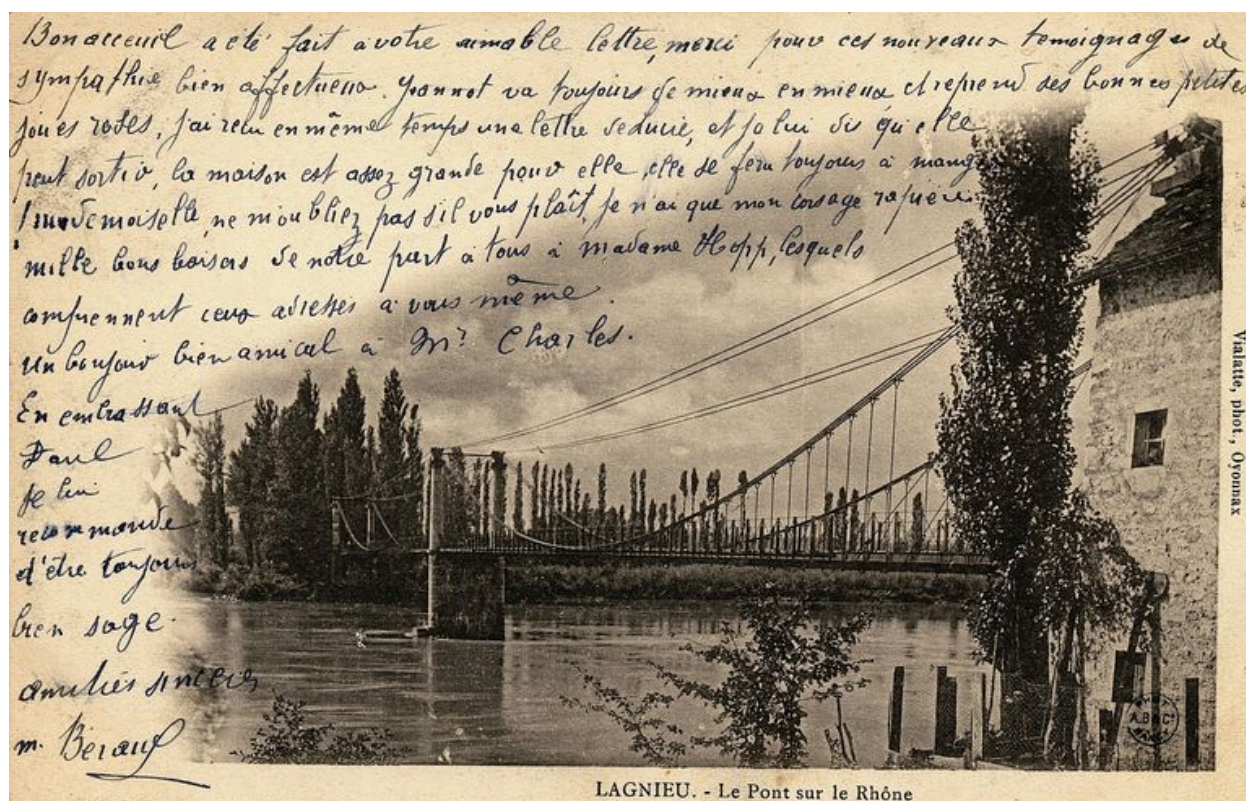 Bon acceuil a été fait a votre aimable lettre, merci pour ces nouveaux temoignages de
sympathie bien affectueux. Jeannot va toujours de mieux en mieux et reprend ses bonnes petites
joues roses, j'ai recu en même temps une lettre de Lucie, et je lui dis qu'elle
peut sortir, la maison est assez grande pour elle, elle se fera toujours à
Mademoiselle, ne m'oubliez pas s'il vous plaît, je n'ai que mon corsage
mille bons baisers de notre part a tous à madame Hopp, lesquels
comprennent ceux adressés à vous même.
Un bonjour bien amical à Mr Charles.
En embrassant
Paul
je lui
recommande
d'être toujours
bien sage.
amitiés sincères
m. Beraud
LAGNIEU. - Le Pont sur le Rhône
Vialatte, phot., Oyonnax